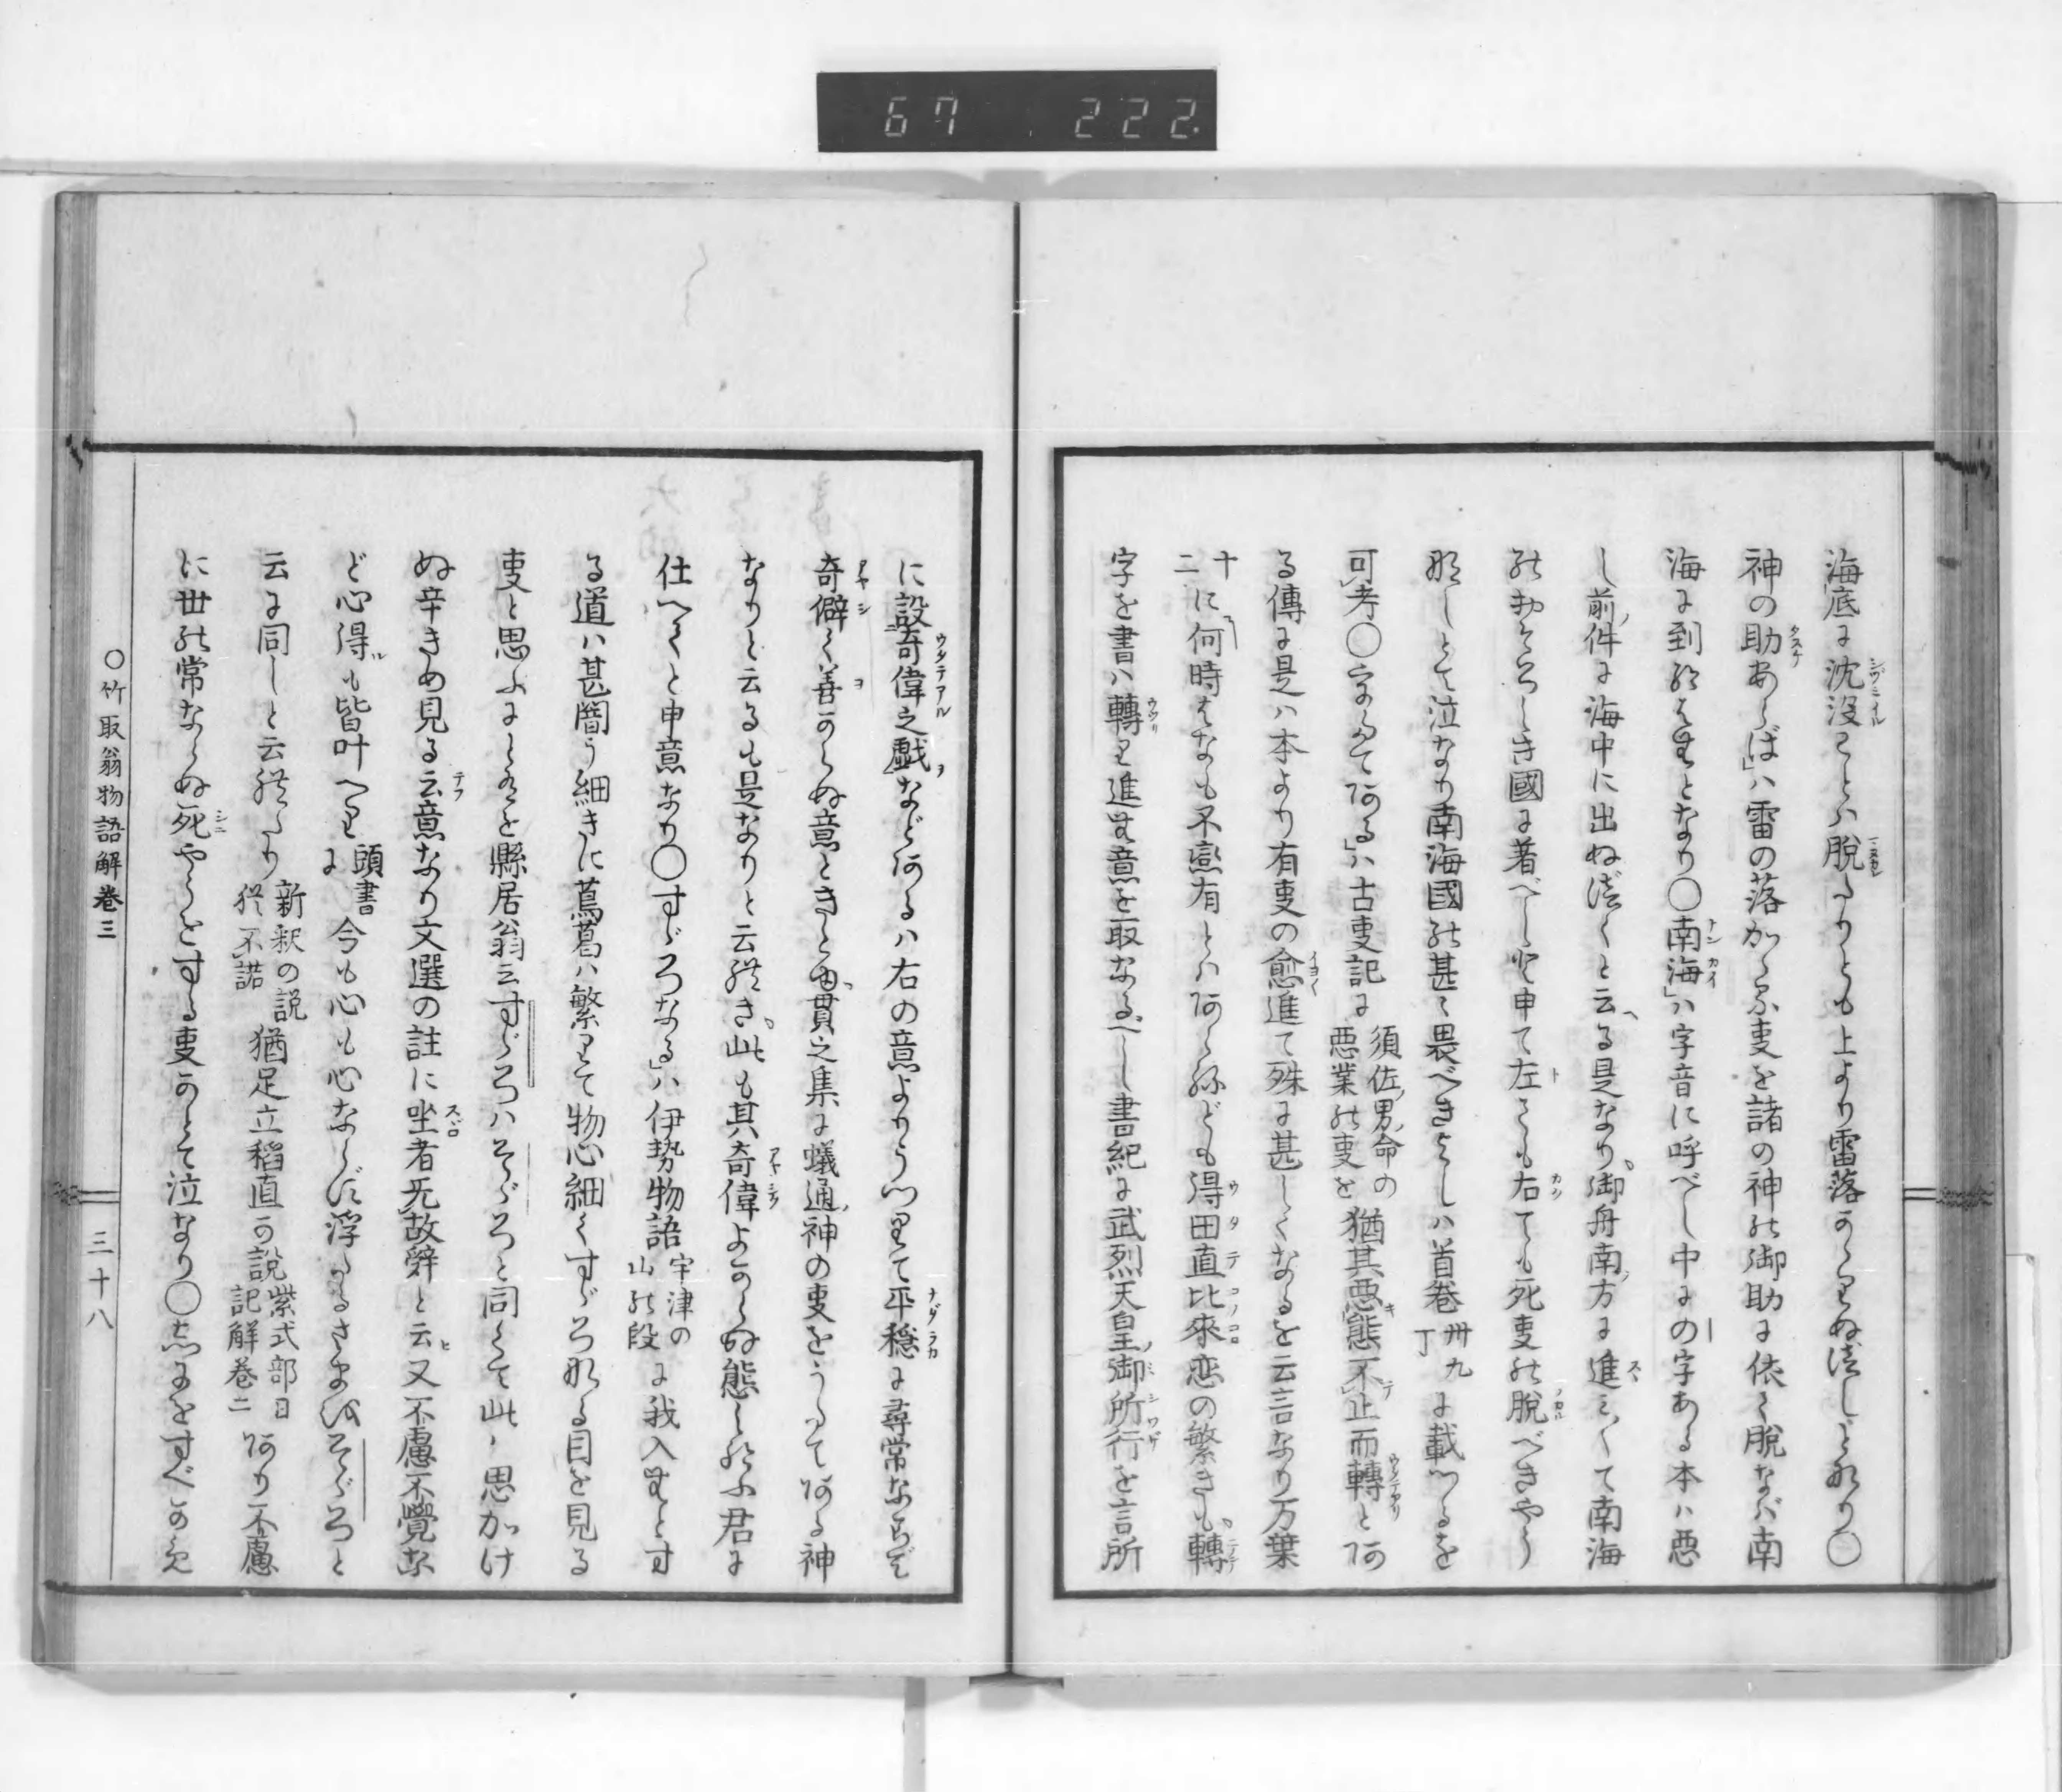 67 222.
海底に沈没ことハ脱たりとも上より雷落かゝりぬべしとなり〇
神の助あらば」ハ雷の落かゝる支を諸の神の御助に依て脱なバ南
海に到りなむとなり〇南海」ハ字音に呼べし中にの字ある本ハ悪
し前件に海中に出ぬべくと云る是なり御舟南方に進ミ〳〵て南海
のおそろしき國に着べしと申て左ても右ても死支の脱べきやう
なしとて泣なり南海國の甚く畏べきよしハ首巻卅九丁に載つるを
可考〇うたて阿る」ハ古支記に須佐男命の悪業の支を猶其悪態不止而轉と阿
る傳に是ハ本より有支の愈進て殊に甚しくなるを云言なり万葉
十二に何時はなも不戀有とハ阿らねども得田直比來恋の繁きも轉
字を書ハ轉り進む意を取なるべし書紀に武烈天皇御所行を言所
に設奇偉之戯など阿るハ右の意よりうつりて平穏に尋常ならぞ
奇僻く善からぬ意ときこゆ貫之集に蟻通神の支をうたて阿る神
なりと云るも是なりと云れき此も其奇偉よからぬ態し給ふ君に
仕へてと申意なり〇すゞろなる」ハ伊勢物語宇津の山の段に我入むとす
る道ハ甚闇う細きに蔦葛ハ繁りて物心細くすゞろなる目を見る
支と思ふにとあるを縣居翁云すゞろハそゞろと同くて此ハ思かけ
ぬ辛きめ見る云意なり文選の註に坐者无故辭と云又不慮不覺な
ど心得も皆叶へり頭書に今も心も心ならず浮たるさまをそゞろと
云に同しと云れたり新釈の説犹不諾猶足立稻直か説紫式部日記解巻二阿り不慮
に世の常ならぬ死やうをする支かとて泣なり〇
〇竹取翁物語解巻三
三十八